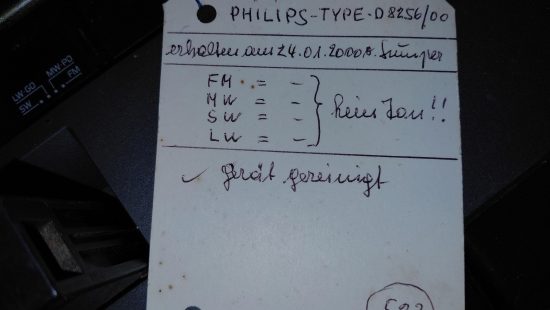 PHILIPS-TYPE-D8256/00
erhalten am 24.01.2000
FM = -
MW = -
SW = -
LW = -
kein Ton!!
✓ Gerät gereinigt
LW·GO
MW·PO
SW
FM